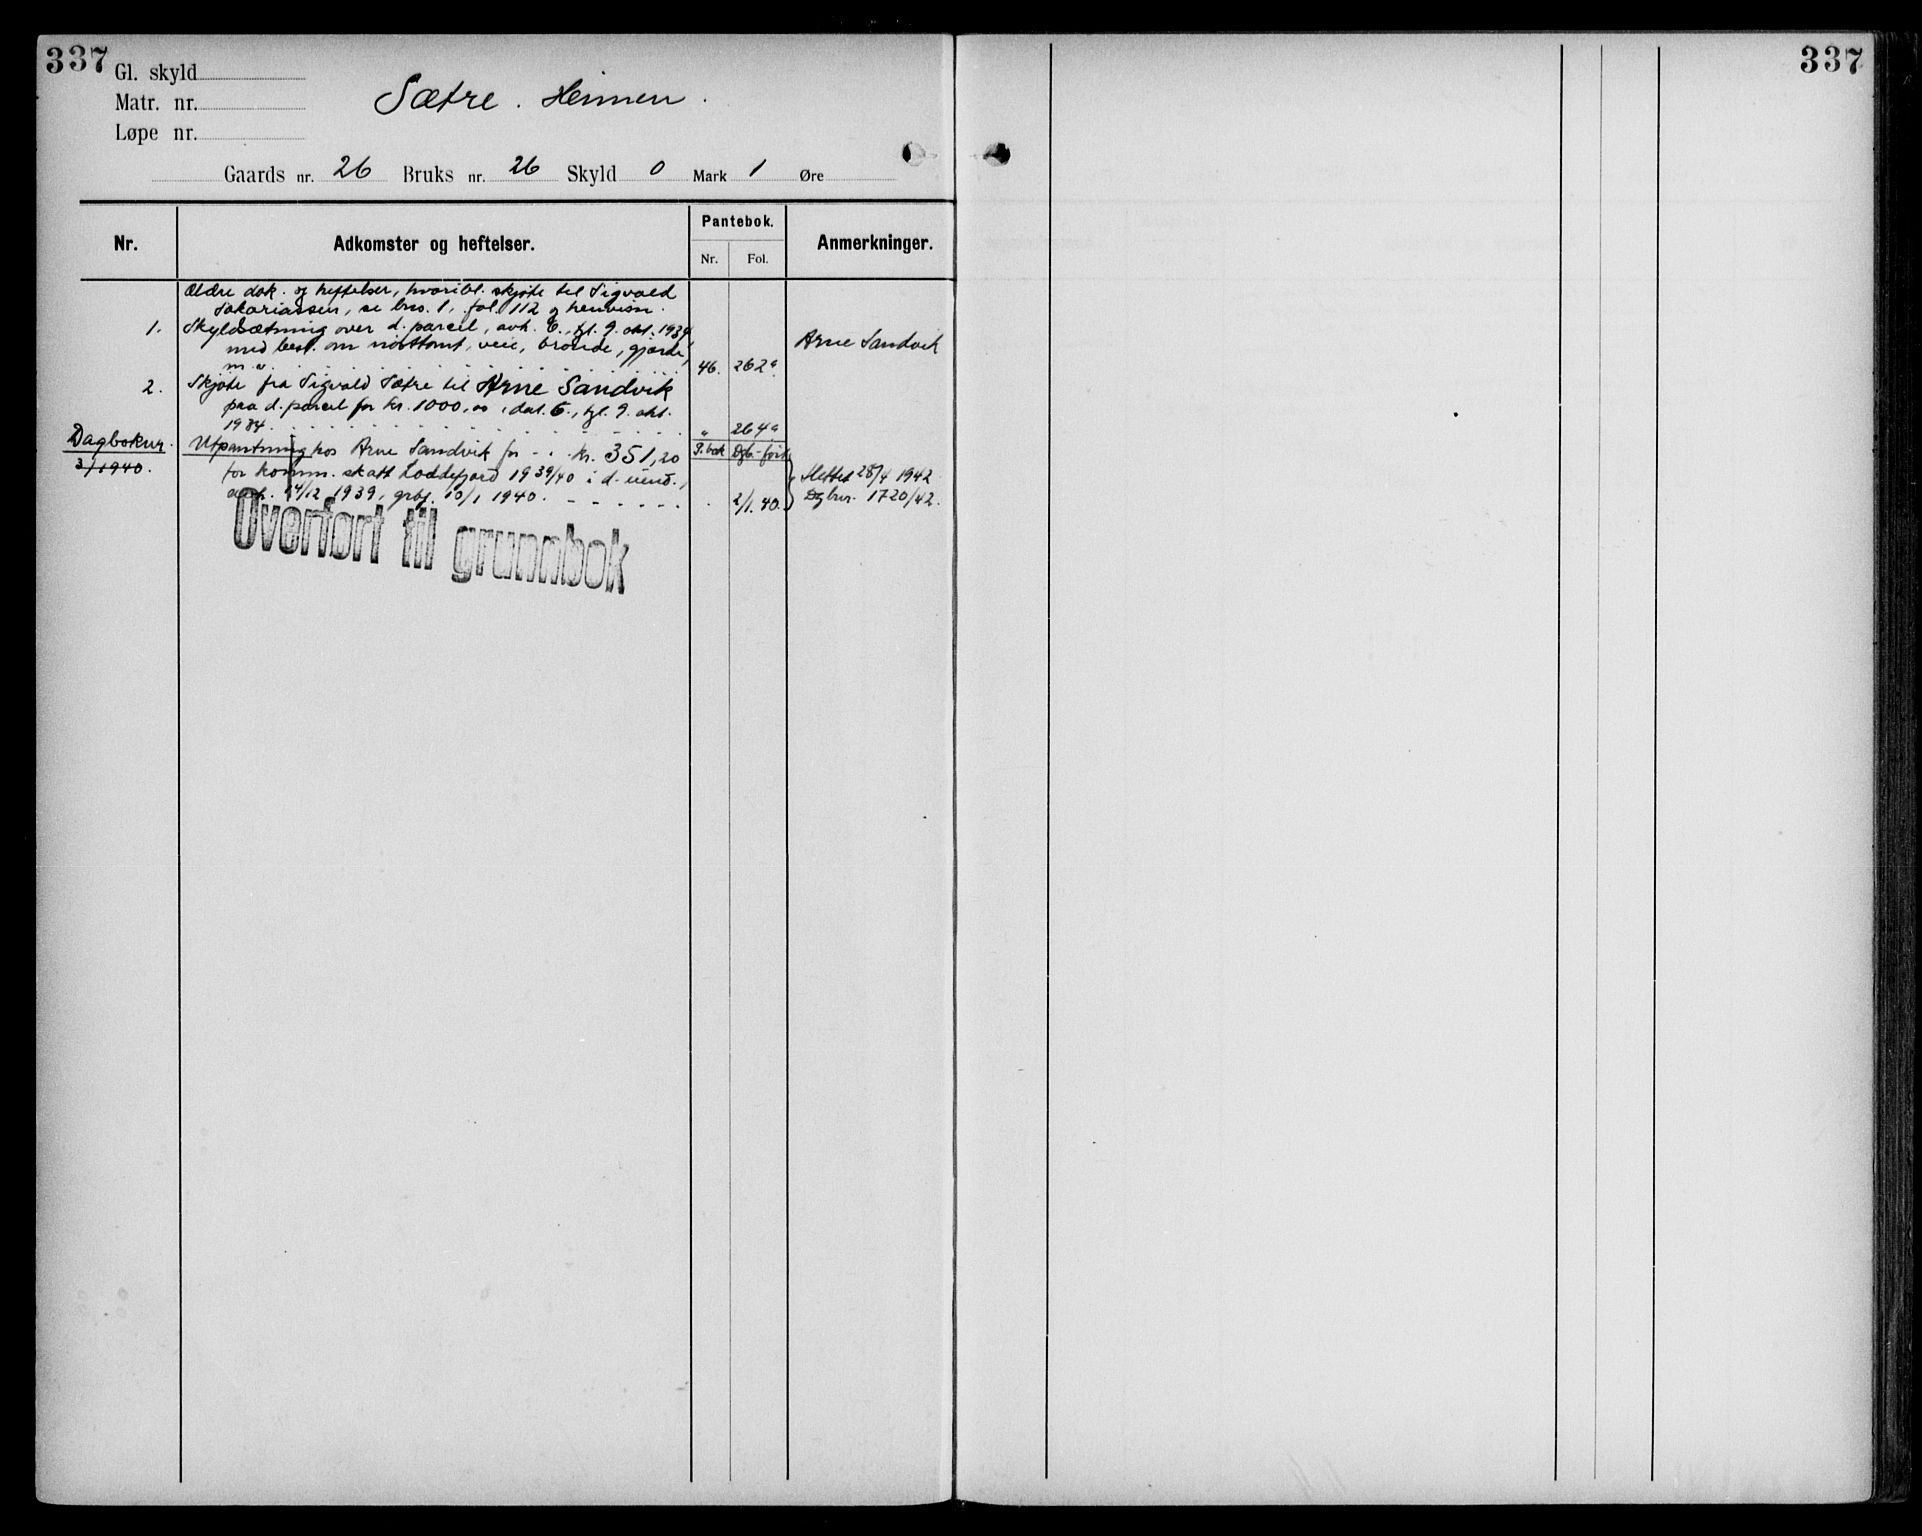 337
337
Gl. skyld
Matr. nr.
Løpe nr.
Sætre. Heimen.
Gaards nr. 26 Bruks nr. 26 Skyld 0 Mark 1 Øre
Nr.
Adkomster og heftelser.
Pantebok.
Nr. Fol.
Anmerkninger.
Ældre dok. og heftelser, hvoribl. skjøte til Sigvald
Sakariassen, se brs. 1, fol. 112 og henvisn.
1. Skyldsætning over d. parcel, avh. 6., tgl. 9. okt. 1934
med best. om nøsttomt, veie, brønde, gjærde,
m. v. 46. 262a Arne Sandvik
2. Skjøte fra Sigvald Sætre til Arne Sandvik
paa d. parcel for kr. 1000,00, dat. 6., tgl. 9. okt.
1934. " 264a
Dagboknr. Utpantning hos Arne Sandvik for - . - kr. 351,20 P.bok Dgb.-ført
2/1940. for komm. skatt Loddefjord 1939/40 i d. eiend., Slettet 28/4 1942
avh. 14/12 1939, grbf. 10/1 1940. 2/1.40. Dgbnr. 1720/42.
Overført til grunnbok